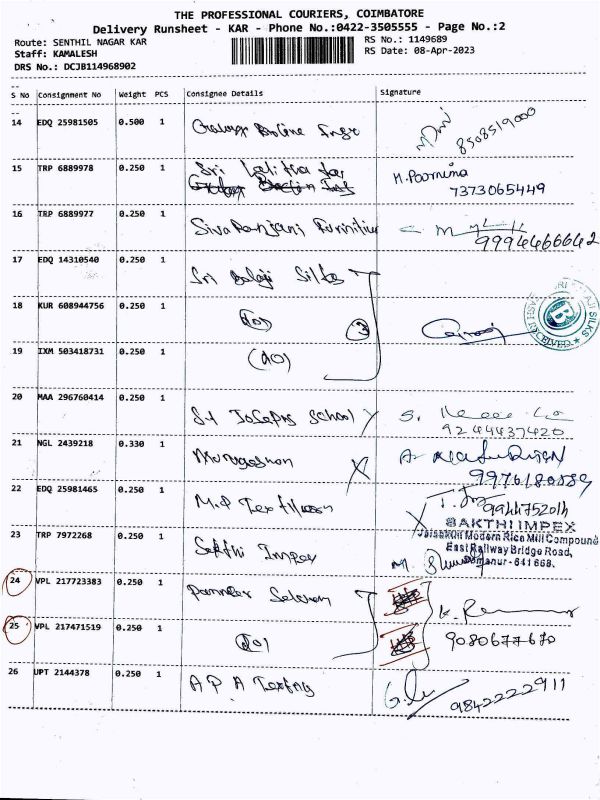 THE PROFESSIONAL COURIERS, COIMBATORE
Delivery Runsheet - KAR - Phone No.:0422-3505555 - Page No.:2
Route: SENTHIL NAGAR KAR
RS No.: 1149689
Staff: KAMALESH
RS Date: 08-Apr-2023
DRS No.: DCJB114968902
S No Consignment No Weight PCS Consignee Details Signature
14 EDQ 25981505 0.500 1
8508519000
15 TRP 6889978 0.250 1 Sri Lalitha
M. Poornima
7373065449
16 TRP 6889977 0.250 1 Siva Ranjani Furnitiur
9994466642
17 EDQ 14310540 0.250 1 Sri Balaji Silks
18 KUR 608944756 0.250 1 (do) 3
BALAJI SILKS
RECEIVED
19 IXM 503418731 0.250 1 (do)
20 MAA 296760414 0.250 1 St Josephs School
9244437420
21 NGL 2439218 0.330 1
9976180889
22 EDQ 25981465 0.250 1 M.P
9944752014
SAKTHI IMPEX
Modern Rice Mill Compound
23 TRP 7972268 0.250 1 Sakthi Impex
East Railway Bridge Road,
641 668.
24 VPL 217723383 0.250 1
25 VPL 217471519 0.250 1 (do)
9080677670
26 UPT 2144378 0.250 1 A P A
9842222911